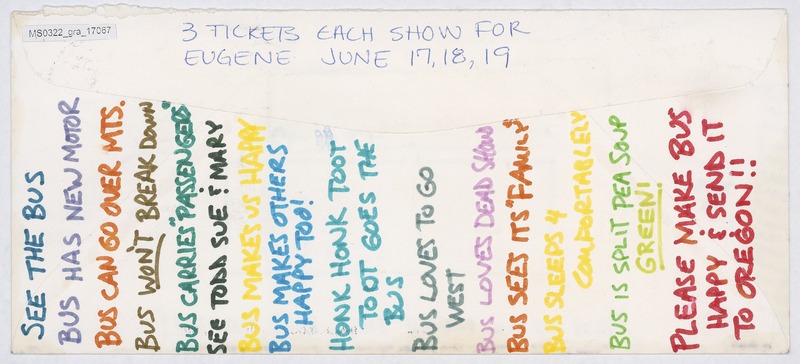 MS0322_gra_17067
3 TICKETS EACH SHOW FOR
EUGENE JUNE 17, 18, 19
SEE THE BUS
BUS HAS NEW MOTOR
BUS CAN GO OVER MTS.
BUS WON'T BREAK DOWN
BUS CARRIES "PASSENGERS"
SEE TODD SUE & MARY
BUS MAKES US HAPPY
BUS MAKES OTHERS
HAPPY TOO!
HONK HONK TOOT
TOOT GOES THE
BUS
BUS LOVES TO GO
WEST
BUS LOVES DEAD SHOW
BUS SEES ITS "FAMILY"
BUS SLEEPS 4
COMFORTABLELY
BUS IS SPLIT PEA SOUP
GREEN!
PLEASE MAKE BUS
HAPPY & SEND IT
TO OREGON!!